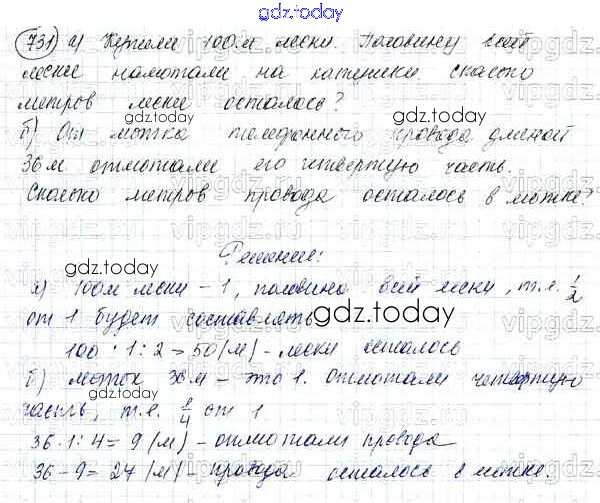 gdz.today
731 а) Купили 100 м лески. Половину всей
лески намотали на катушки. Сколько
метров лески осталось?
gdz.today
gdz.today
б) От мотка телефонного провода длиной
36 м отмотали его четвертую часть.
Сколько метров провода осталось в мотке?
Решение:
gdz.today
а) 100м лески - 1, половина всей лески, т.е. 1/2
от 1 будет составлять
gdz.today
100 · 1 : 2 = 50 (м) - лески осталось
б) моток 36 м - это 1. Отмотали четвертую
часть, т.е. 1/4 от 1
36 · 1 : 4 = 9 (м) - отмотали провода
36 - 9 = 27 (м) - провода осталось в мотке.
gdz.today
gdz.today